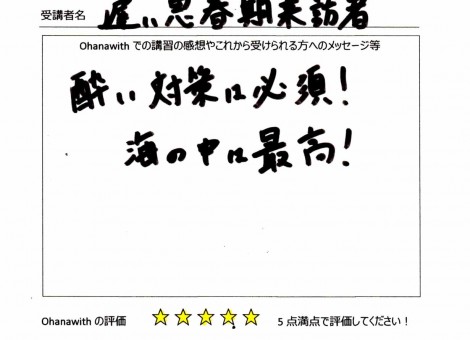 受講者名 遅い思春期来訪者
Ohanawith での講習の感想やこれから受けられる方へのメッセージ等
酔い対策は必須!
海の中は最高!
Ohanawith の評価 ☆☆☆☆☆ 5 点満点で評価してください!